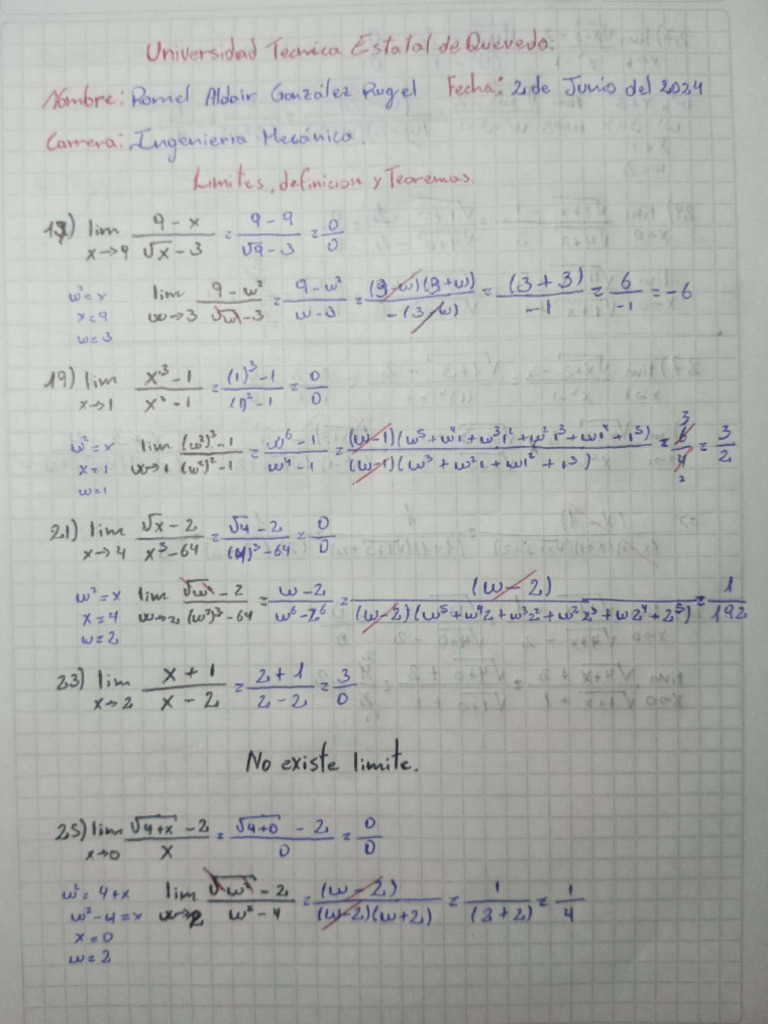 Universidad Tecnica Estatal de Quevedo.
Nombre: Romel Aldair González Rugel Fecha: 2 de Junio del 2024
Carrera: Ingenieria Mecánica.
Limites, definicion y Teoremas.
17) lim x→9 (9 - x)/(√x - 3) = (9 - 9)/(√9 - 3) = 0/0
w² = x
x = 9
w = 3
lim w→3 (9 - w²)/(√w² - 3) = (9 - w²)/(w - 3) = (3 - w)(3 + w)/-(3 - w) = (3 + 3)/-1 = 6/-1 = -6
19) lim x→1 (x³ - 1)/(x² - 1) = ((1)³ - 1)/((1)² - 1) = 0/0
w² = x
x = 1
w = 1
lim w→1 ((w²)³ - 1)/((w²)² - 1) = (w⁶ - 1)/(w⁴ - 1) = (w - 1)(w⁵ + w⁴1 + w³1² + w²1³ + w1⁴ + 1⁵)/(w - 1)(w³ + w²1 + w1² + 1³) = 6/4 = 3/2
3
2
21) lim x→4 (√x - 2)/(x³ - 64) = (√4 - 2)/((4)³ - 64) = 0/0
w² = x
x = 4
w = 2
lim w→2 (√w² - 2)/((w²)³ - 64) = (w - 2)/(w⁶ - 2⁶) = (w - 2)/(w - 2)(w⁵ + w⁴2 + w³2² + w²2³ + w2⁴ + 2⁵) = 1/192
23) lim x→2 (x + 1)/(x - 2) = (2 + 1)/(2 - 2) = 3/0
No existe limite.
25) lim x→0 (√4+x - 2)/x = (√4+0 - 2)/0 = 0/0
w² = 4 + x
w² - 4 = x
x = 0
w = 2
lim w→2 (√w² - 2)/(w² - 4) = (w - 2)/(w - 2)(w + 2) = 1/(2 + 2) = 1/4